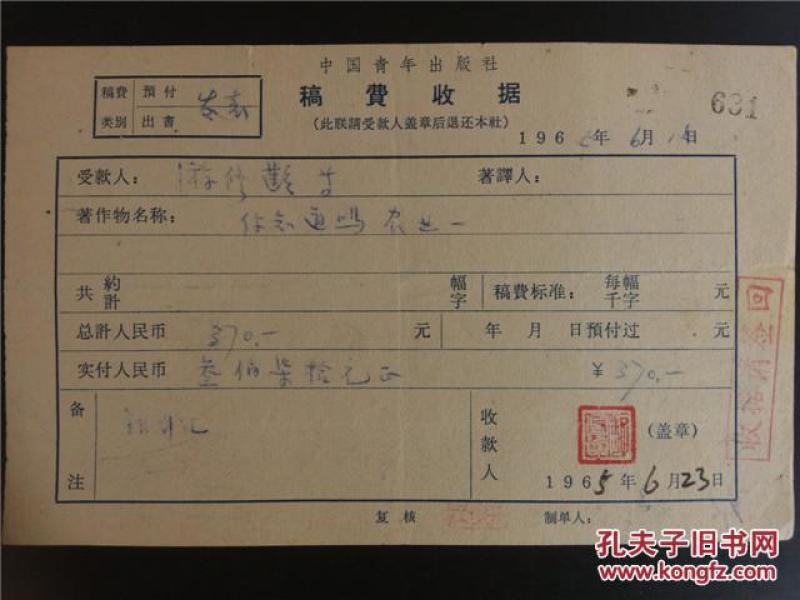 中国青年出版社
稿費收据
631
(此联請受款人盖章后退还本社)
稿費类别 預付 出書
196 年6月 日
受款人：游修 著譯人：
著作物名称：你知道吗 农业一
共約計 幅字 稿費标准：每幅千字 元
总計人民币 370.— 元 年 月 日預付过 元
实付人民币 叁佰柒拾元正 ¥370.—
备注
收款人 (盖章)
1965年6月23日
复核 制单人：
孔夫子旧书网